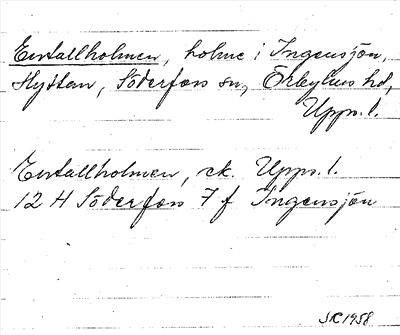 Enstallholmen, holme i Ingensjön,
Hyttan, Söderfors sn, Örbyhus hd,
Upps. l.
Enstallholmen, ek. Upps. l.
12 H Söderfors 7 f Ingensjön
SK 1958